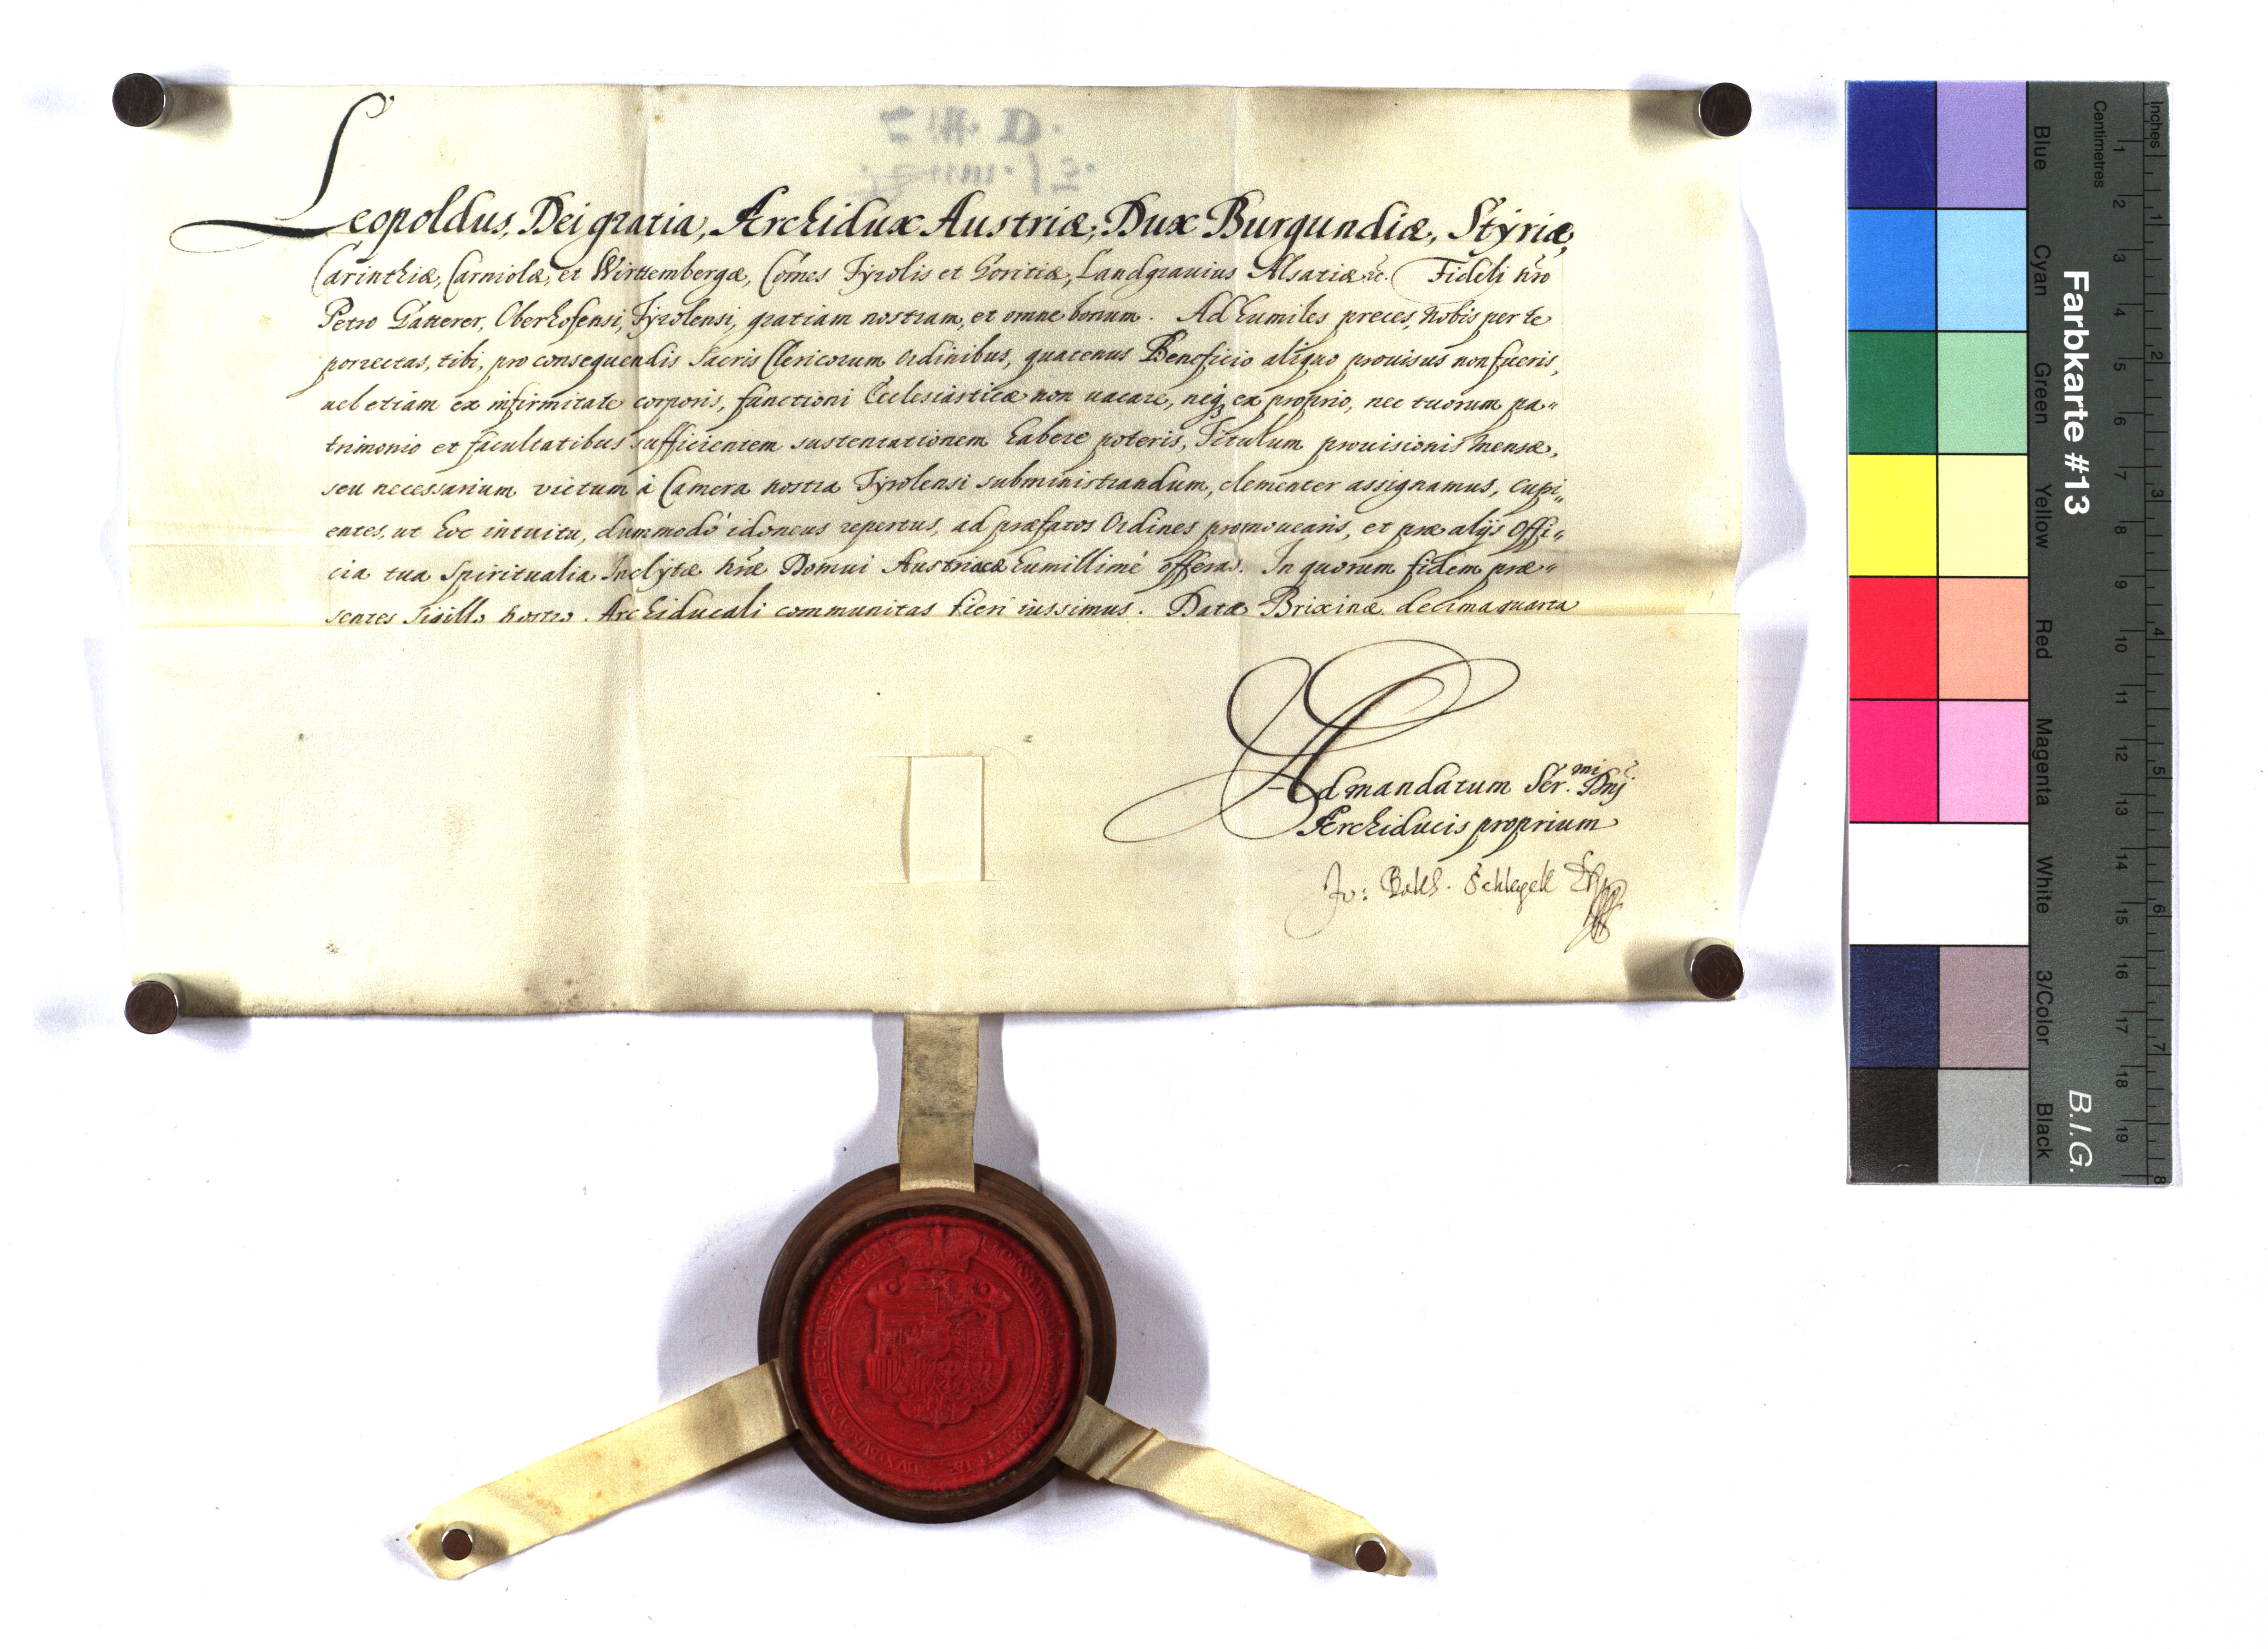 Leopoldus, Dei gratia, Archidux Austriæ, Dux Burgundiæ, Styriæ,
Carinthiæ, Carniolæ, et Wirttembergæ, Comes Tyrolis et Goritiæ, Landgrauius Alsatiæ &c. Fideli nro
Petro Gatterer, Oberhofensi, Tyrolensi, gratiam nostram, et omne bonum. Ad humiles preces, nobis per te
porrectas, tibi, pro consequendis Sacris Clericorum Ordinibus, quatenus Beneficio aliquo prouisus non fueris,
uel etiam ex infirmitate corporis, functioni Ecclesiasticæ non uacare, neq; ex proprio, nec tuorum pa„
trimonio et facultatibus sufficientem sustentationem habere poteris, Titulum prouisionis mensæ,
seu necessarium victum à Camera nostra Tyrolensi subministrandum, clementer assignamus, cupi„
entes, ut hoc intuitu, dummodò idoneus repertus, ad præfatos Ordines promouearis, et præ alijs Offi„
cia tua Spiritualia Inclytæ nræ Domui Austriacæ humillimè offeras. In quorum fidem præ„
sentes Sigillo nostro Archiducali communitas fieri iussimus. Datæ Brixinæ decima quarta
Ad mandatum Ser.mi Dnj
Archiducis proprium
Jo: Bakh. Schlegell
Farbkarte #13
B.I.G.
Inches 1 2 3 4 5 6 7 8
Centimetres 1 2 3 4 5 6 7 8 9 10 11 12 13 14 15 16 17 18 19
Blue Cyan Green Yellow Red Magenta White 3/Color Black